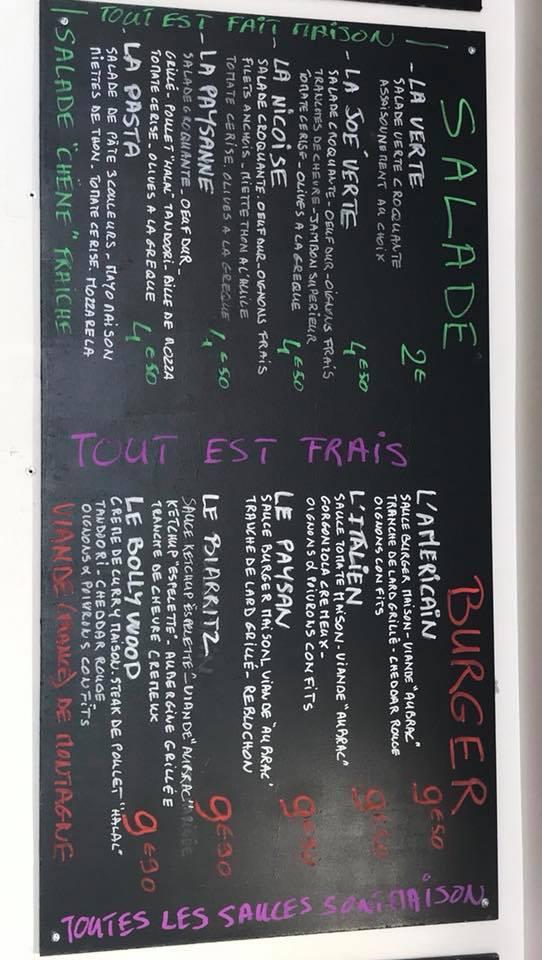 TOUT EST FAIT MAISON
SALADE
- LA VERTE
SALADE VERTE CROQUANTE
ASSAISONNEMENT AU CHOIX
2€
- LA JOE VERTE
SALADE CROQUANTE - OEUF DUR - OIGNONS FRAIS
TRANCHES DE CHEVRE - JAMBON SUPERIEUR
TOMATE CERISE - OLIVES A LA GREQUE
4€50
- LA NICOISE
SALADE CROQUANTE. OEUF DUR - OIGNONS FRAIS
FILETS ANCHOIS - MIETTE THON A L'HUILE
TOMATE CERISE. OLIVES A LA GREQUE
4€50
- LA PAYSANNE
SALADE CROQUANTE. OEUF DUR -
GRILLÉ - POULLET "HALAL" TANDOORI - BILLE DE MOZZA
TOMATE CERISE - OLIVES A LA GREQUE
4€50
- LA PASTA
SALADE DE PÂTE 3 COULEURS - MAYO MAISON
MIETTES DE THON. TOMATE CERISE. MOZZARELA
4€50
SALADE "CHÊNE" FRAICHE
TOUT EST FRAIS
BURGER
L'AMERICAIN
SAUCE BURGER MAISON - VIANDE "AUBRAC"
TRANCHE DE LARD GRILLÉ - CHEDDAR ROUGE
OIGNONS CONFITS
9€50
L'ITALIEN
SAUCE TOMATE MAISON - VIANDE "AUBRAC"
GORGONZOLA CREMEUX -
OIGNONS & POIVRONS CONFITS
LE PAYSAN
SAUCE BURGER MAISON, VIANDE "AUBRAC"
TRANCHE DE LARD GRILLÉ - REBLOCHON
LE BIARRITZ
SAUCE KETCHUP ESPELETTE - VIANDE "AUBRAC"
KETCHUP "ESPELETTE" - AUBERGINE GRILLÉE
TRANCHE DE CHEVRE CREMEUX
9€90
LE BOLLYWOOD
CREME DE CURRY MAISON, STEAK DE POULLET "HALAL"
TANDOORI - CHEDDAR ROUGE
OIGNONS & POIVRONS CONFITS
9€90
VIANDE (FRANCE) DE MONTAGNE
TOUTES LES SAUCES SONT MAISON